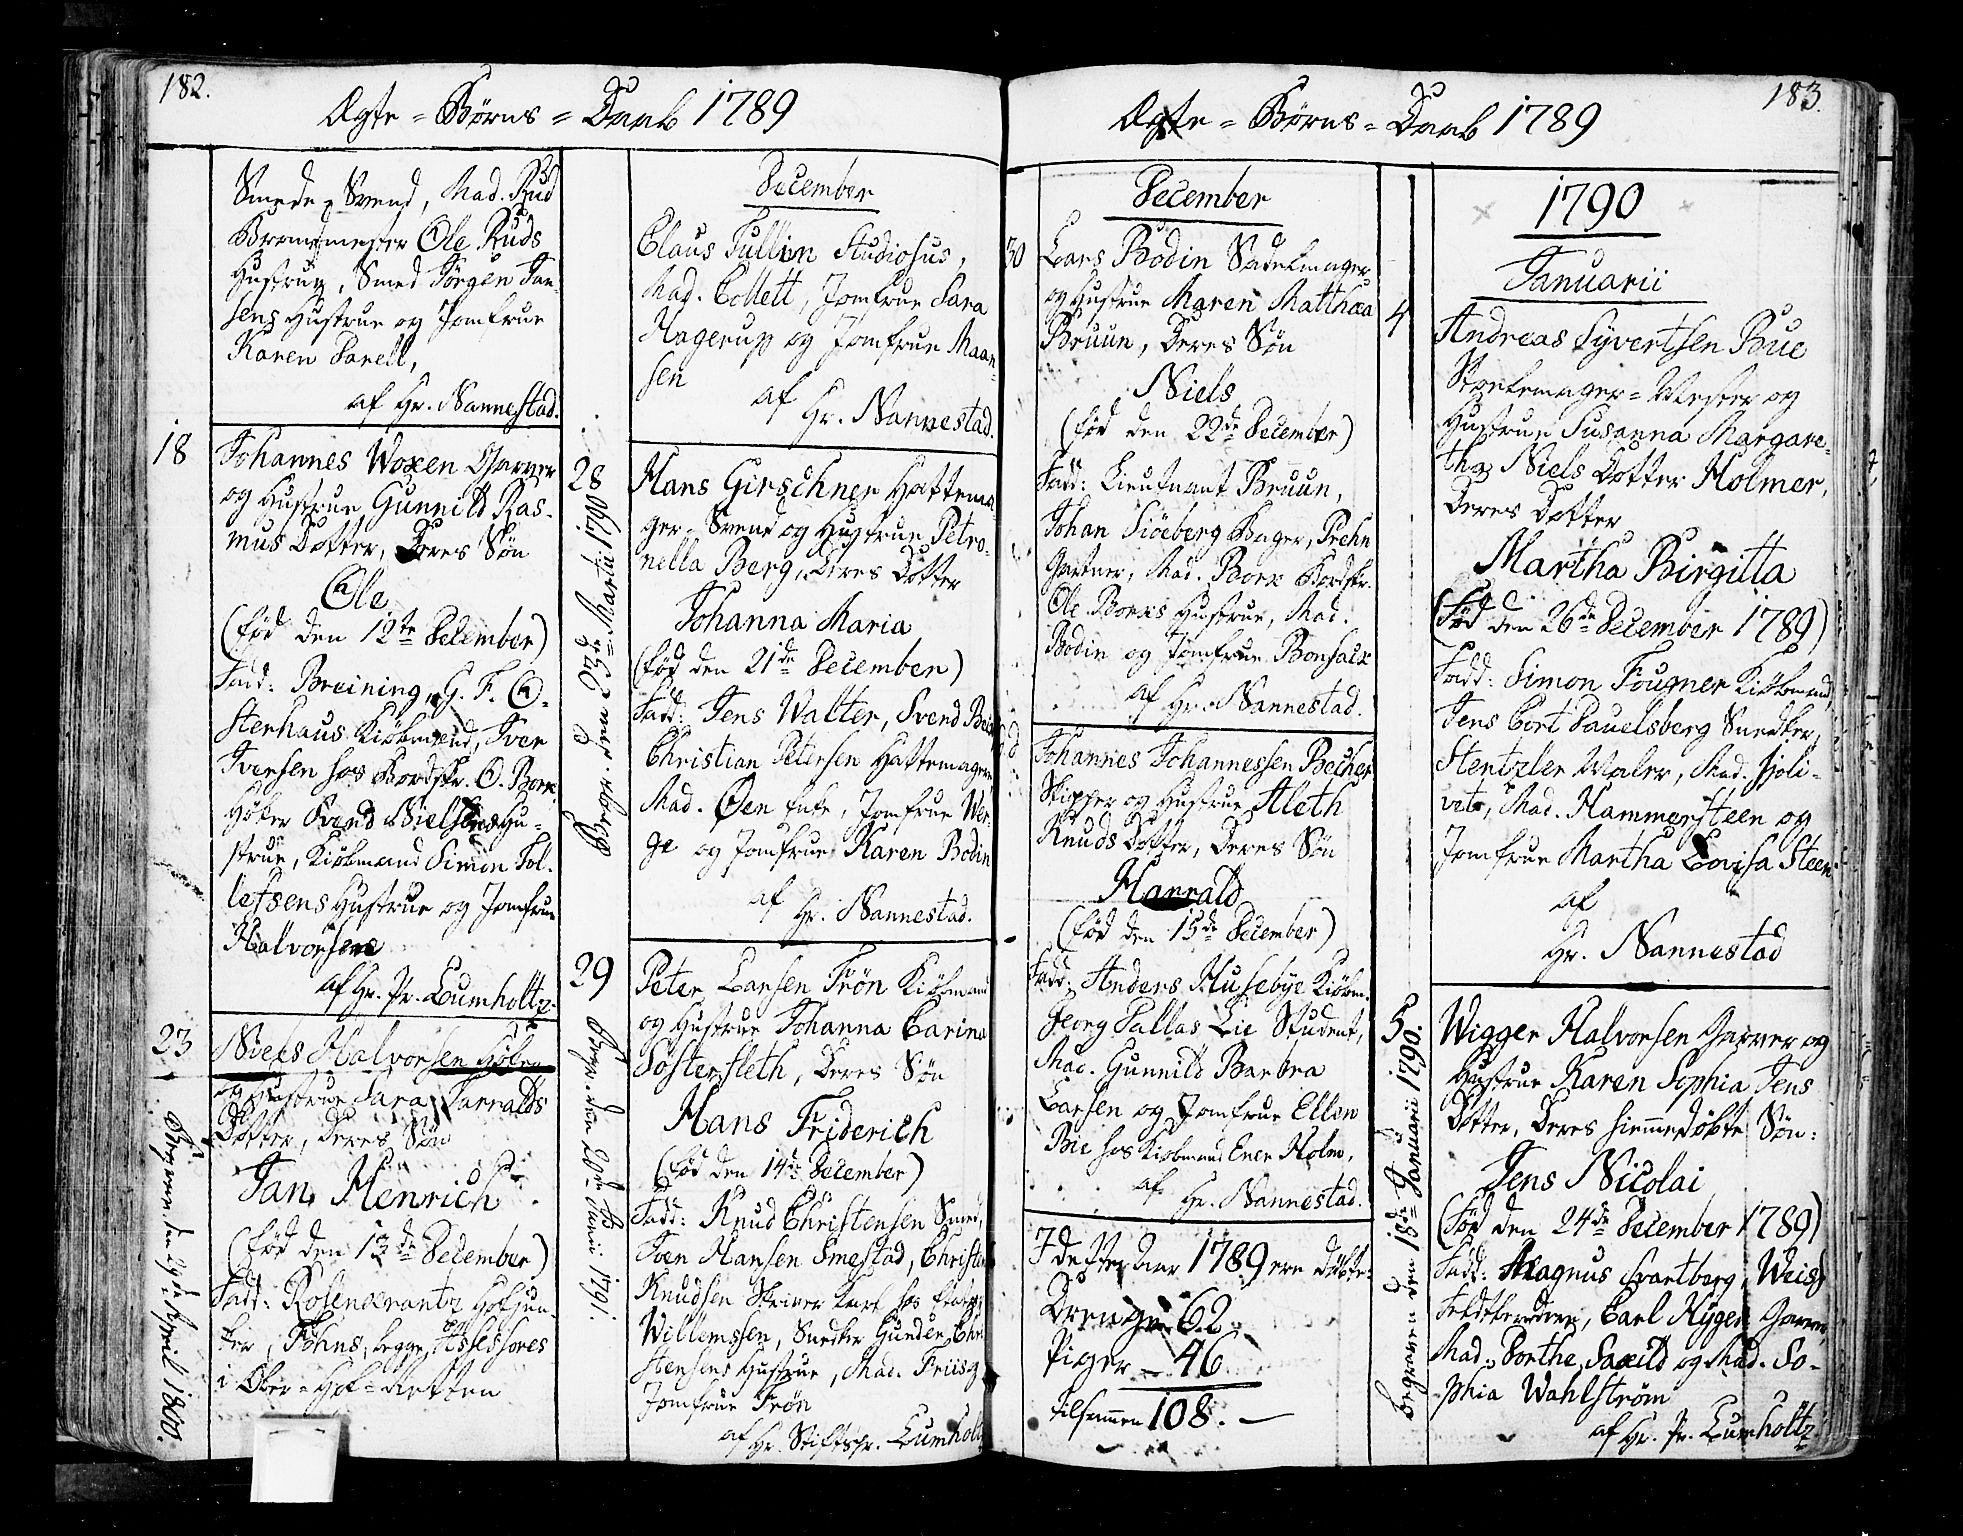 182.
Ægte = Børns = Daab 1789
Smede Svend, Mad. Rud
Brandmester Ole Ruds
Hustrue, Smed Jørgen Jan-
sens Hustrue og Jomfrue
Karen Parell,
af Hr. Nannestad.
18
Johannes Woxen Garver
og Hustrue Gunnild Ras-
mus Dotter, Deres Søn
Ole
(fød den 12te December)
Fadd: Breining, G. F. O-
sterhaus Kiøbmand, Iver
Iversen hos Bordskr. O. Bork,
Høker Svend Nielsens Hu-
strue, Kiøbmand Simon Tol-
lefsens Hustrue og Jomfrue
Halvorsen
af Hr. Pr. Lumholtz.
23
Begraven den 29de April 1800.
Niels Halvorsen Høker
og Hustrue Sara Tarralds
Dotter, Deres Søn
Jan Henrich
(fød den 13de December)
Fadd: Rosencrantz Hofjun-
ker, Föhns, begge Assessores
i Ober-Hof-Retten
December
Claus Tullin Studiosus,
Mad. Collett, Jomfrue Sara
Hagerup og Jomfrue Maan-
sen
af
Hr. Nannestad.
28
Begraven den 26de Martii 1790
Hans Girschner Hattema-
ger-Svend og Hustrue Petro-
nella Berg, Deres Dotter
Johanna Maria
(fød den 21de December)
Fadd: Jens Walter, Svend
Christian Petersen Hattemager,
Mad. Øen Enke, Jomfrue Wer-
ge og Jomfrue Karen Bodin
af
Hr. Nannestad.
29
Begr. den 20de Junii 1791.
Peter Larsen Trön Kiøbmand
og Hustrue Johanna Carina
Fosterfleth, Deres Søn
Hans Friderich
(fød den 14de December)
Fadd: Knud Christensen Smed,
Joen Hansen Smestad, Christen
Knudsen Skriver Karl hos
Willemssen, Snedker Gunder Chri-
stensens Hustrue, Mad. Friis og
Jomfrue Trön
af Hr. Stiftspr. Lumholtz
183.
Ægte = Børns = Daab 1789
December
30
Lars Bodin Sadelmager
og Hustrue Maren Matthæa
Bruun, Deres Søn
Niels
(fød den 22de December)
Fadd: Lieutnant Bruun,
Johan Siöeberg Bager, Prehn
Gartner, Mad. Bork Bordskr.
Ole Borks Hustrue, Mad.
Bodin og Jomfrue Bonsack
af Hr. Nannestad.
Johannes Johannessen Becher
Skipper og Hustrue Aleth
Knuds Dotter, Deres Søn
Harrald
(fød den 15de December)
Fadd: Anders Husebÿe Kiøbm.
Georg Pallas Lie Student,
Mad. Gunnild Barbra
Larsen og Jomfrue Ellen
Bie hos Kiøbmand Ener Holm,
af Hr. Nannestad.
I dette Aar 1789 ere døbte:
Drenge 62
Piger - 46
tilsammen 108. -
1790
Januarii
4
Andreas Syvertsen Bue
Stolemager = Mester og
Hustrue Susanna Margare-
tha Niels Dotter Holmer,
Deres Dotter
Martha Birgitta
(Fød den 26de December 1789)
Fadd: Simon Fougner Kiøbmand,
Jens Cort Pauelsberg Snedker,
Stentzler Maler, Mad. Joli-
vet, Mad. Hammersteen og
Jomfrue Martha Lovisa Steen
af
Hr. Nannestad
5
Begraven den 18de Januarii 1790.
Wigger Halvorsen Garver og
Hustrue Karen Sophia Jens
Dotter, Deres hiemmedøbte Søn:
Jens Nicolai
(Fød den 24de December 1789)
Fadd: Magnus Svartberg, Weis
Feldtbereder, Carl Hÿger Garver,
Mad. Dorthe Saxild og Mad. So-
phia Wahlström
af Hr. Pr. Lumholtz